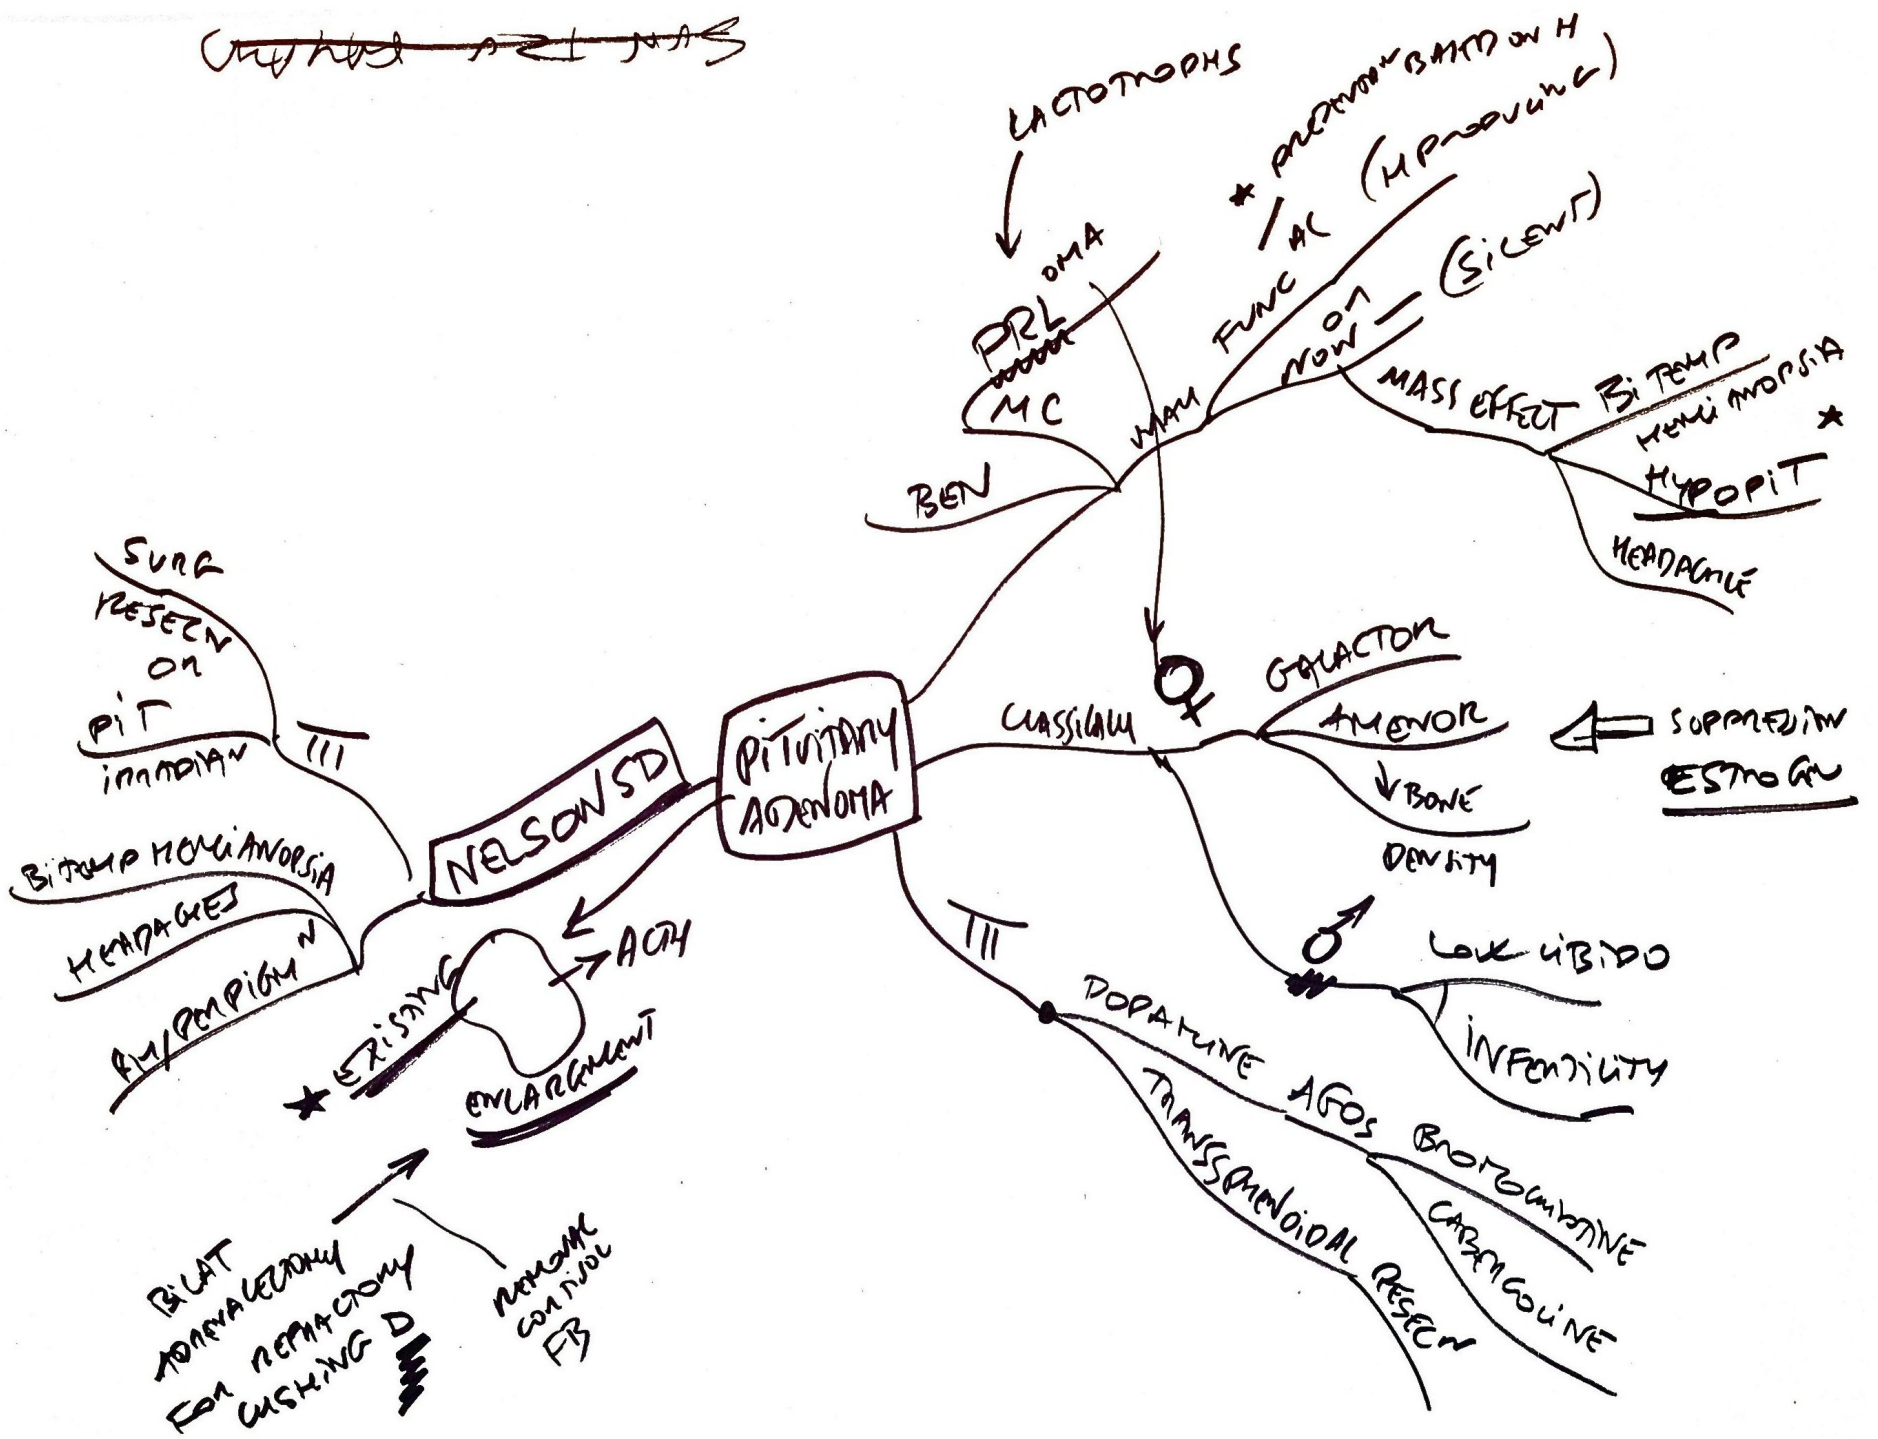 LACTOTROPHS
* BASED ON H
(H PRODUCING)
/
AL
FUNC
OMA
PRL
MC
BEN
ON
NON —
(SILENT)
MASS EFFECT
BiTEMP
HEMiANOPSiA
*
HYPOPiT
HEADACHE
PiTUiTARY
ADENOMA
CLASSICALLY
♀
GALACTOR
AMENOR
↓ BONE
DENSiTY
SUPPRESSION
ESTROGN
♂
LOW LIBIDO
iNFERTiLiTY
TTT
DOPAMINE AGOS
BROMOCRIPTINE
CABERGOLiNE
TRANSSPHENOiDAL RESECN
NELSON SD
TTT
SURG
RESECN
OR
PiT
iRRADIAN
BiTEMP HEMiANOPSiA
HEADACHES
HYPERPIGM N
* EXiSTiNG
ACTH
ENLARGMENT
BiLAT
ADRENALECTOMY
FOR REFRACTORY
CUSHiNG D
REMOVAL
CORTiSOL
FB